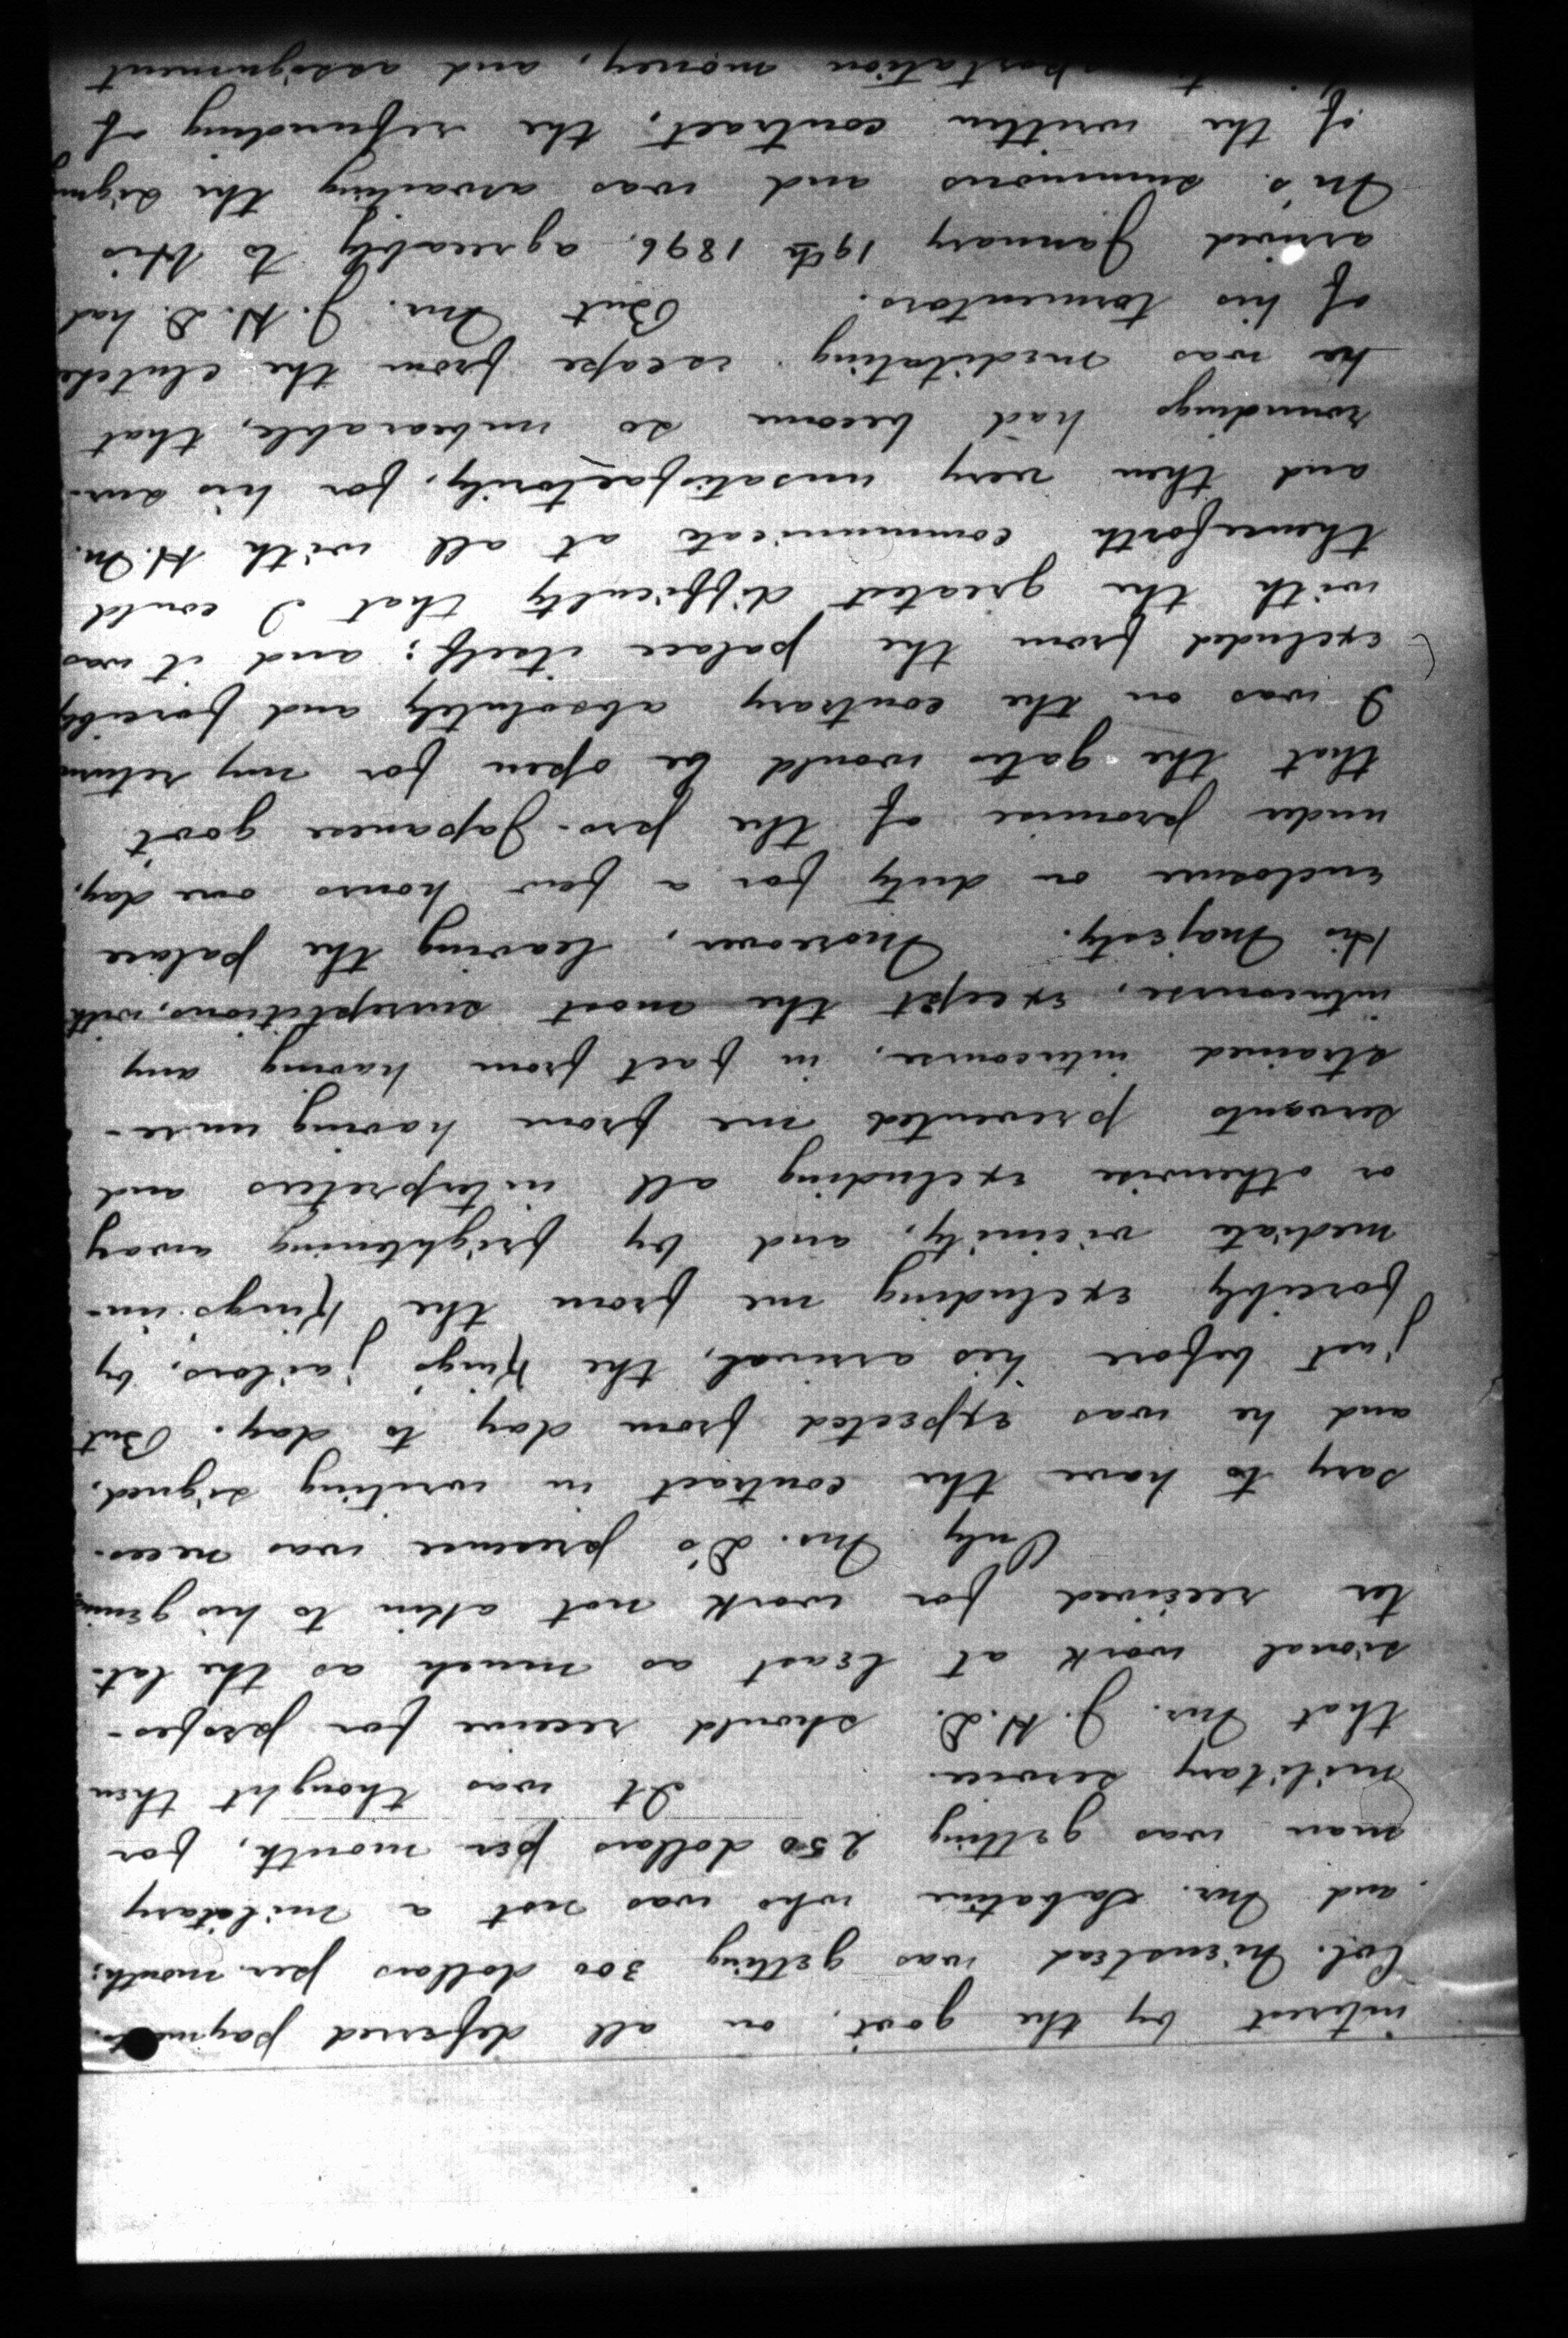 interest by the govt, on all deferred payments.
Col. Nienstead was getting 300 dollars per month;
and Mr. Sabatine who was not a military
man was getting 250 dollars per month, for
military service. It was thought then
that Mr. J. H. D. should receive for profes-
sional work at least as much as the lat-
ter received for work not akin to his genius.
Only Mr. D's presence was neces-
sary to have the contract in writing signed,
and he was expected from day to day. But
just before his arrival, the King's jailors, by
forcibly excluding me from the King's im-
mediate vicinity, and by frightening away
or otherwise excluding all interpreters and
servants prevented me from having unre-
strained intercourse, in fact from having any
intercourse, except the most surreptitious, with
His Majesty. Moreover, leaving the palace
enclosure on duty for a few hours one day,
under promise of the pro-Japanese govt
that the gates would be open for my return
I was on the contrary absolutely and forcibly
excluded from the palace itself; and it was
with the greatest difficulty that I could
thenceforth communicate at all with H.M.
and then very unsatisfactorily, for his sur-
roundings had become so unbearable, that
he was meditating escape from the clutches
of his tormentors. But Mr. J. H. D. had
arrived January 19th 1896, agreeably to His
M's. summons and was awaiting the signing
of the written contract, the refunding of
money, and assignment